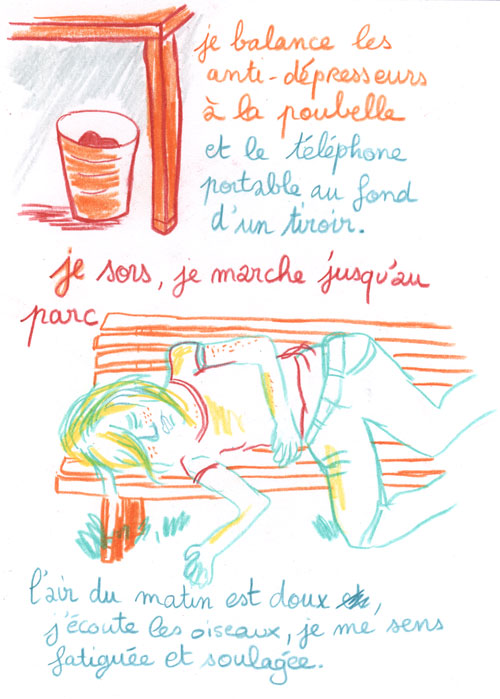 je balance les
anti-dépresseurs
à la poubelle
et le téléphone
portable au fond
d'un tiroir.
je sors, je marche jusqu'au
parc
l'air du matin est doux,
j'écoute les oiseaux, je me sens
fatiguée et soulagée.